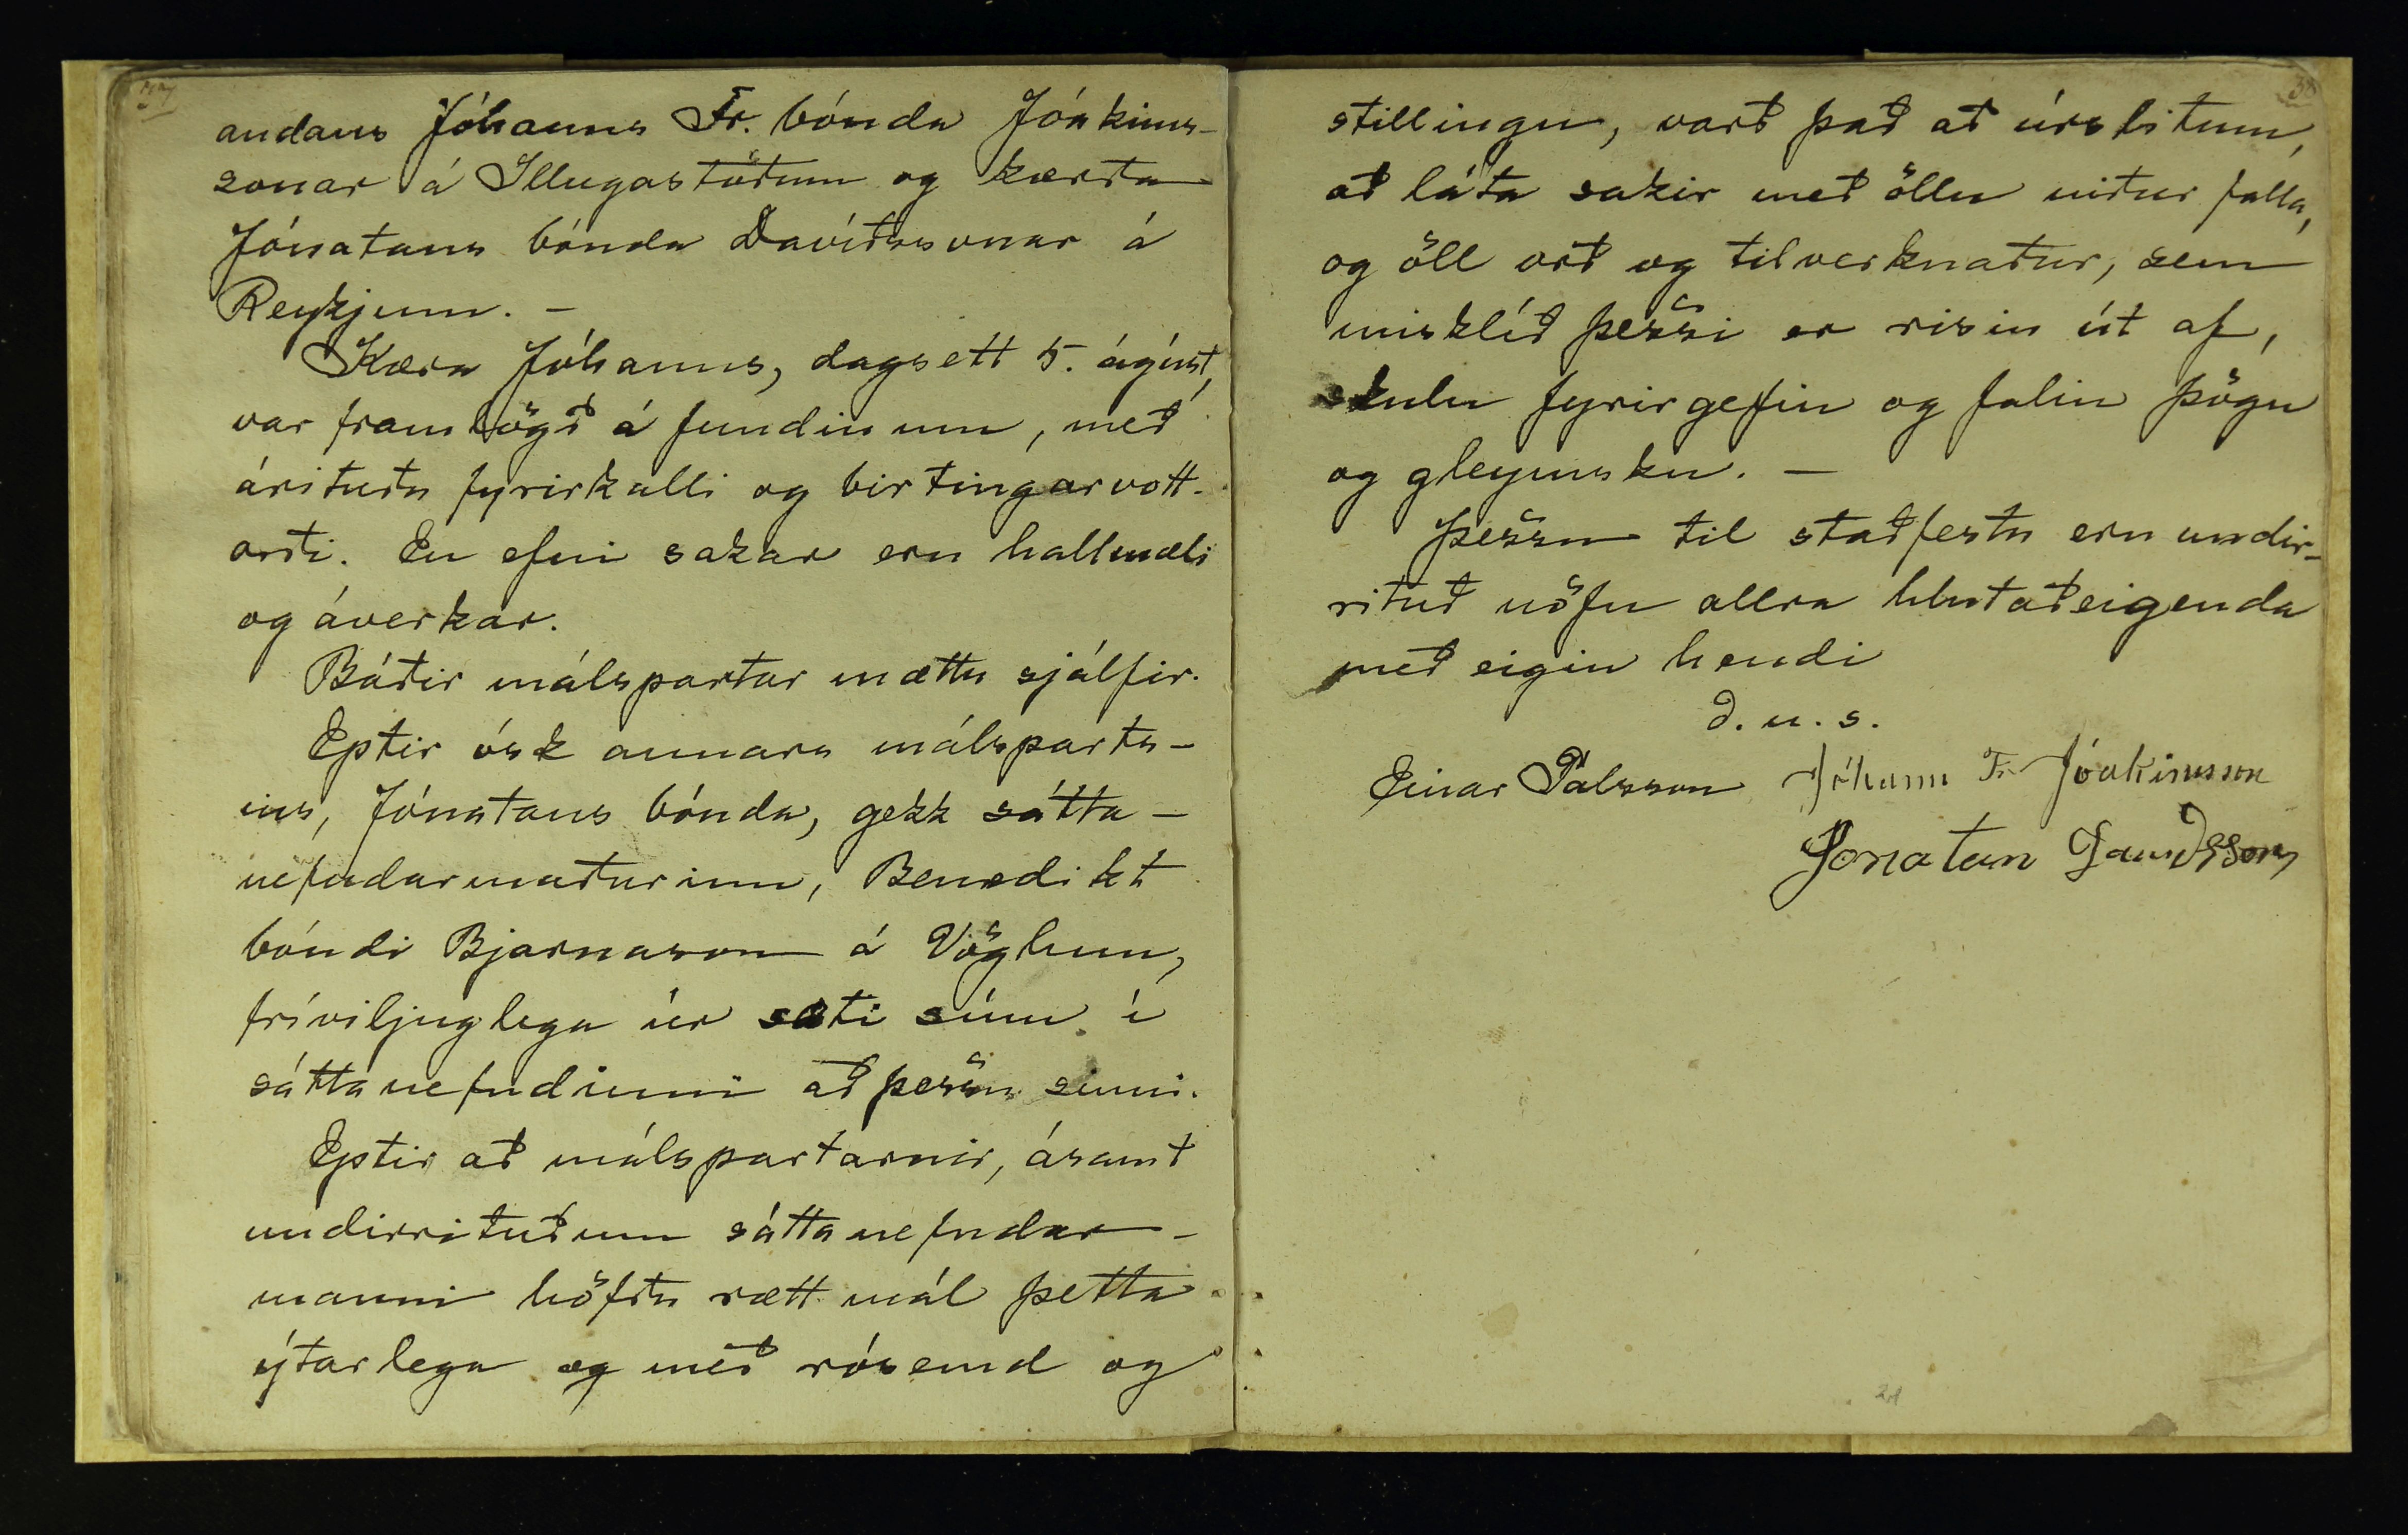 andans Jóhanns Fr. bónda Jóakims-
sonar á Illugastöðum og kærða
Jónatans bónda Davíðssonar á
Reykjum. –
Kæra Jóhanns, dagsett 5. ágúst,
var framlögð á fundinum, með
árituðu fyrirkalli og birtingarvott-
orði. En efni sakar eru hallmæli
og áverkar.
Báðir málspartar mættu sjálfir.
Eptir ósk annars málsparts-
ins, Jónatans bónda, gekk sátta-
nefndarmaðurinn, Benedikt
bóndi Bjarnason á Vöglum,
fríviljuglega úr sæti sínu í
sáttanefndinni að þessu sinni.
Eptir að málspartarnir, ásamt
undirrituðum sáttanefndar-
manni höfðu rætt mál þetta
ýtarlega og með rósemd og
38
stillingu, varð það að úrslitum,
að láta sakir með öllu niður falla,
og öll orð og tilverknaður, sem
misklíð þessi er risin út af,
skulu fyrirgefin og falin þögn
og gleymsku. –
Þessu til staðfestu eru undir-
rituð nöfn allra hlutaðeigenda
með eigin hendi
d. u. s.
Einar Pálsson Jóhann Fr Jóakimsson
Jónatan Davíðsson
21